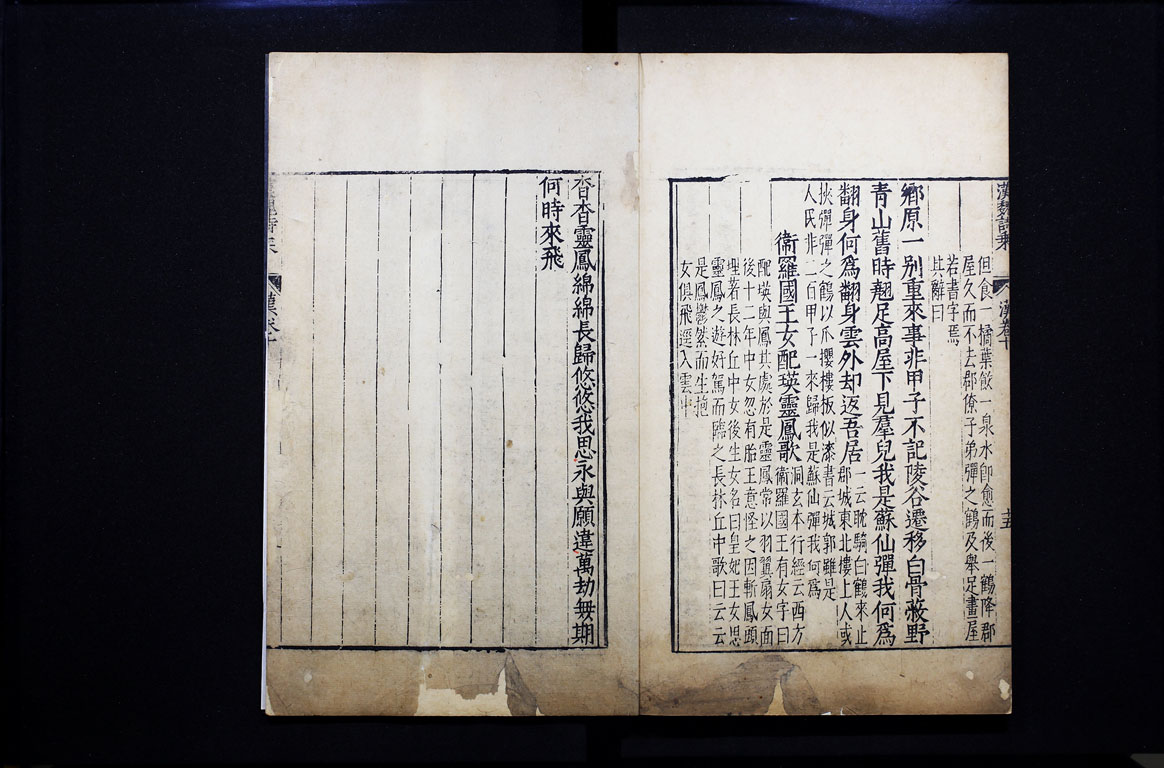 漢魏詩乘 漢卷十 十五
但食一橘葉飲一泉水卽愈而後一鶴降郡
屋久而不去郡僚子弟彈之鶴及舉足畫屋
若書字焉
其辭曰
鄉原一别重來事非甲子不記陵谷遷移白骨蔽野
青山舊時翹足高屋下見羣兒我是蘇仙彈我何爲
翻身何爲翻身雲外却返吾居
一云耽騎白鶴來止
郡城東北樓上人或
挾彈彈之鶴以爪攫樓板似漆書云城郭雖是
人民非二百甲子一來歸我是蘇仙彈我何爲
衛羅國王女配瑛靈鳳歌
洞玄本行經云西方
衛羅國王有女字曰
配瑛與鳳共處於是靈鳳常以羽翼扇女面
後十二年中女忽有胎王意怪之因斬鳳頭
埋著長林丘中女後生女名曰皇妃王女思
靈鳳之遊好駕而臨之長林丘中歌曰云云
是鳳鬱然而生抱
女俱飛逕入雲中
杳杳靈鳳綿綿長歸悠悠我思永與願違萬劫無期
何時來飛